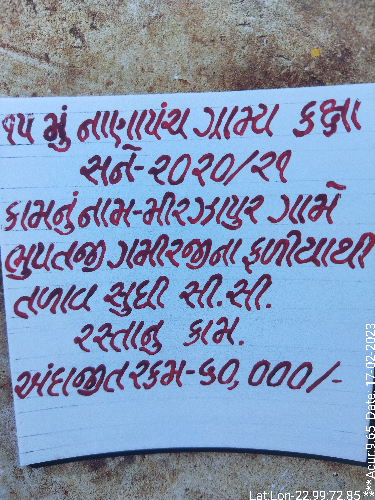 ૧૫ મું નાણાપંચ ગ્રામ્ય કક્ષા
સને-૨૦૨૦/૨૧
કામનું નામ-મીરઝાપુર ગામે
ભુપતજી ગમીરજીના ફળીયાથી
તળાવ સુધી સી.સી.
રસ્તાનુ કામ.
અંદાજીત રકમ-૬૦,૦૦૦/-
Lat:Lon-22.99:72.85***Acur:9.65 Date:17-02-2023